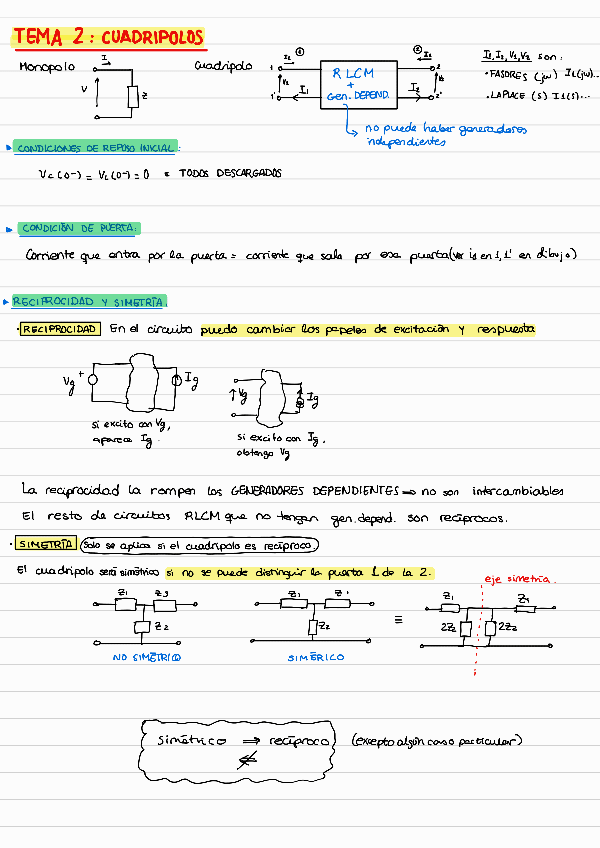 TEMA 2: CUADRIPOLOS
Monopolo
I
V
Z
Cuadripolo
I1
1
V1
1'
I1
RLCM
+
Gen. DEPEND.
I2
2
V2
2'
I2
I1, I2, V1, V2 son:
· FASORES (jω) I1(jω)...
· LAPLACE (S) I1(s)...
no puede haber generadores
independientes
CONDICIONES DE REPOSO INICIAL:
Vc(0-) = VL(0-) = 0 = TODOS DESCARGADOS
CONDICIÓN DE PUERTA:
Corriente que entra por la puerta = corriente que sale por esa puerta (ver is en 1,1' en dibujo)
RECIPROCIDAD Y SIMETRÍA:
· RECIPROCIDAD En el circuito puedo cambiar los papeles de excitación y respuesta
Vg
+
Ig
Vg
Ig
si excito con Vg,
aparece Ig.
si excito con Ig,
obtengo Vg
La reciprocidad la rompen los GENERADORES DEPENDIENTES ⇒ no son intercambiables
El resto de circuitos RLCM que no tengan gen. depend. son recíprocos.
· SIMETRÍA (Solo se aplica si el cuadripolo es recíproco)
El cuadripolo será simétrico si no se puede distinguir la puerta 1 de la 2.
eje simetría.
Z1
Z3
Z2
NO SIMÉTRICO
Z1
Z1
Z2
SIMÉRICO
≡
Z1
Z1
2Z2
2Z2
Simétrico ⇒ recíproco (excepto algún caso particular)
⇍